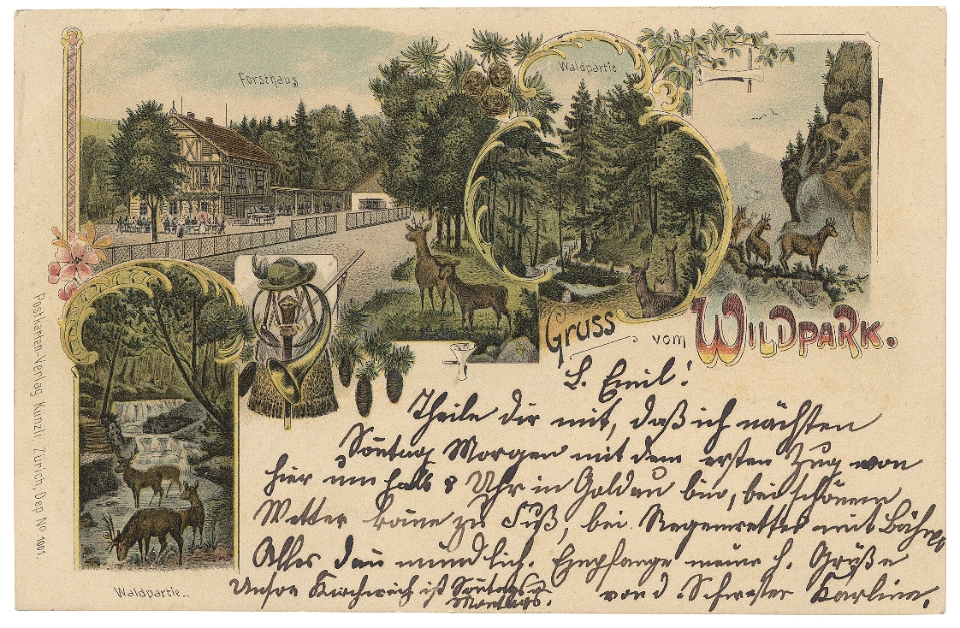 Forsthaus
Waldpartie
Gruss vom WILDPARK.
Waldpartie..
Postkarten-Verlag Künzli, Zürich, Dep. No. 1001.
L. Emil!
Theile dir mit, daß ich nächsten
Sontag Morgen mit dem ersten Zug von
hier um halb 8 Uhr in Goldau bin, bei schönem
Wetter kome zu Fuß, bei Regenwetter mit Bahn.
Alles dan mündlich. Empfange meine h. Grüße
von d. Schwester Karline.
Unsere Kirchweih ist Sontag u
Montags.